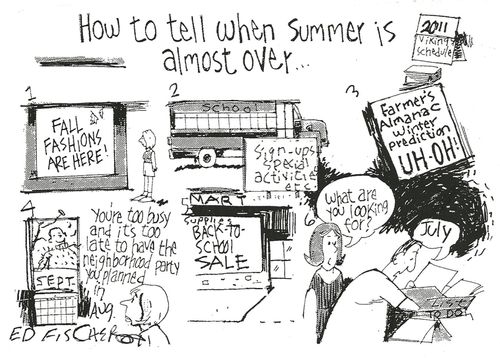 How to tell when Summer is
almost over...
2011
Vikings
schedule
1
FALL
FASHIONS
ARE HERE!
2
SCHOOL
Sign-ups
Special
activities
etc.
3
Farmer's
Almanac
winter
prediction
UH-OH!
4
SEPT.
You're too busy
and it's too
late to have the
neighborhood party
you planned
in
AUG.
MART
Supplies
BACK-TO-
SCHOOL
SALE
6
What are
you looking
for?
July
LISTS
TO DO!
ED FISCHER